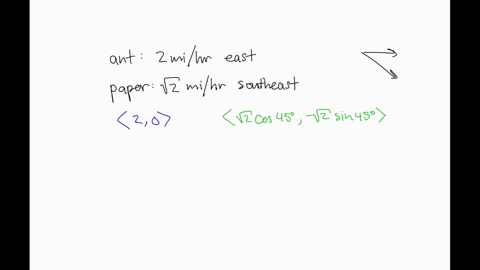 ant: 2 mi/hr east
paper: √2 mi/hr southeast
⟨2,0⟩ ⟨√2 cos 45°, -√2 sin 45°⟩